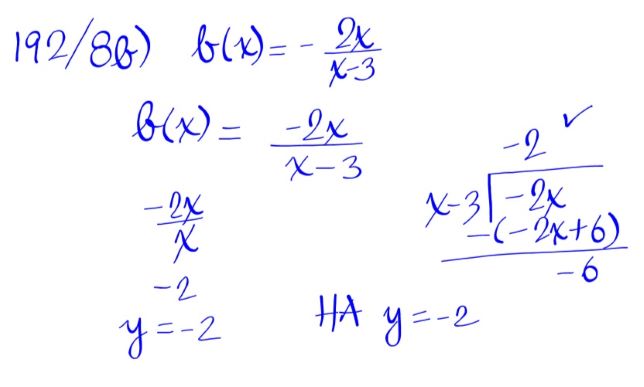 192/8b) b(x) = - 2x/(x-3)
b(x) = -2x/(x-3)
-2x/x
-2
y = -2
-2 ✓
x-3 | -2x
-(-2x+6)
-6
HA y = -2